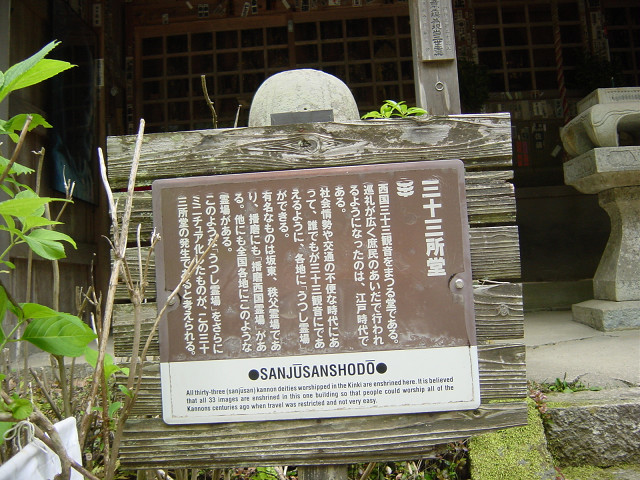 三十三所堂
西国三十三観音をまつる堂である。
巡礼が広く庶民のあいだで行われ
るようになったのは、江戸時代で
ある。
社会情勢や交通の不便な時代にあ
って、誰でもが三十三観音にであ
えるように、各地に、うつし霊場
ができる。
有名なものは坂東、秩父霊場であ
り、播磨にも「播磨西国霊場」があ
る。他にも全国各地にこのような
霊場がある。
このような「うつし霊場」をさらに
ミニチュアル化したものが、この三十
三所堂の発生であると考えられる。
●SANJŪSANSHODŌ●
All thirty-three (sanjūsan) kannon deities worshipped in the Kinki are enshrined here. It is believed
that all 33 images are enshrined in this one building so that people could worship all of the
Kannons centuries ago when travel was restricted and not very easy.